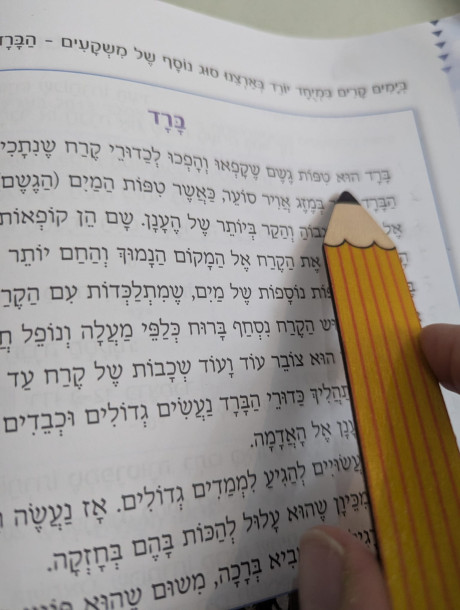 בְּיָמִים קָרִים בִּמְיֻחָד יוֹרֵד בְּאַרְצֵנוּ סוּג נוֹסָף שֶׁל מִשְׁקָעִים – הַבָּרָד
בָּרָד
בָּרָד הוּא טִפּוֹת גֶּשֶׁם שֶׁקָּפְאוּ וְהָפְכוּ לְכַדּוּרֵי קֶרַח שֶׁנִּתָּכִי
הַבָּרָד בְּמֶזֶג אֲוִיר סוֹעֵר, כַּאֲשֶׁר טִפּוֹת הַמַּיִם (הַגֶּשֶׁם
וְהַקַּר בְּיוֹתֵר שֶׁל הֶעָנָן. שָׁם הֵן קוֹפְאוֹת
אֶת הַקֶּרַח אֶל הַמָּקוֹם הַנָּמוּךְ וְהַחַם יוֹתֵר
נוֹסָפוֹת שֶׁל מַיִם, שֶׁמִּתְלַכְּדוֹת עִם הַקֶּרַ
הַקֶּרַח נִסְחָף בָּרוּחַ כְּלַפֵּי מַעְלָה וְנוֹפֵל
הוּא צוֹבֵר עוֹד וָעוֹד שְׁכָבוֹת שֶׁל קֶרַח עַד
כַּדּוּרֵי הַבָּרָד נַעֲשִׂים גְּדוֹלִים וּכְבֵדִים
עָנָן אֶל הָאֲדָמָה.
עֲשׂוּיִים לְהַגִּיעַ לִמְמַדִּים גְּדוֹלִים. אָז נַעֲשֶׂה
מִכֵּיוָן שֶׁהוּא עָלוּל לְהַכּוֹת בָּהֶם בְּחָזְקָה.
בְּרָכָה, מִשּׁוּם שֶׁהוּא